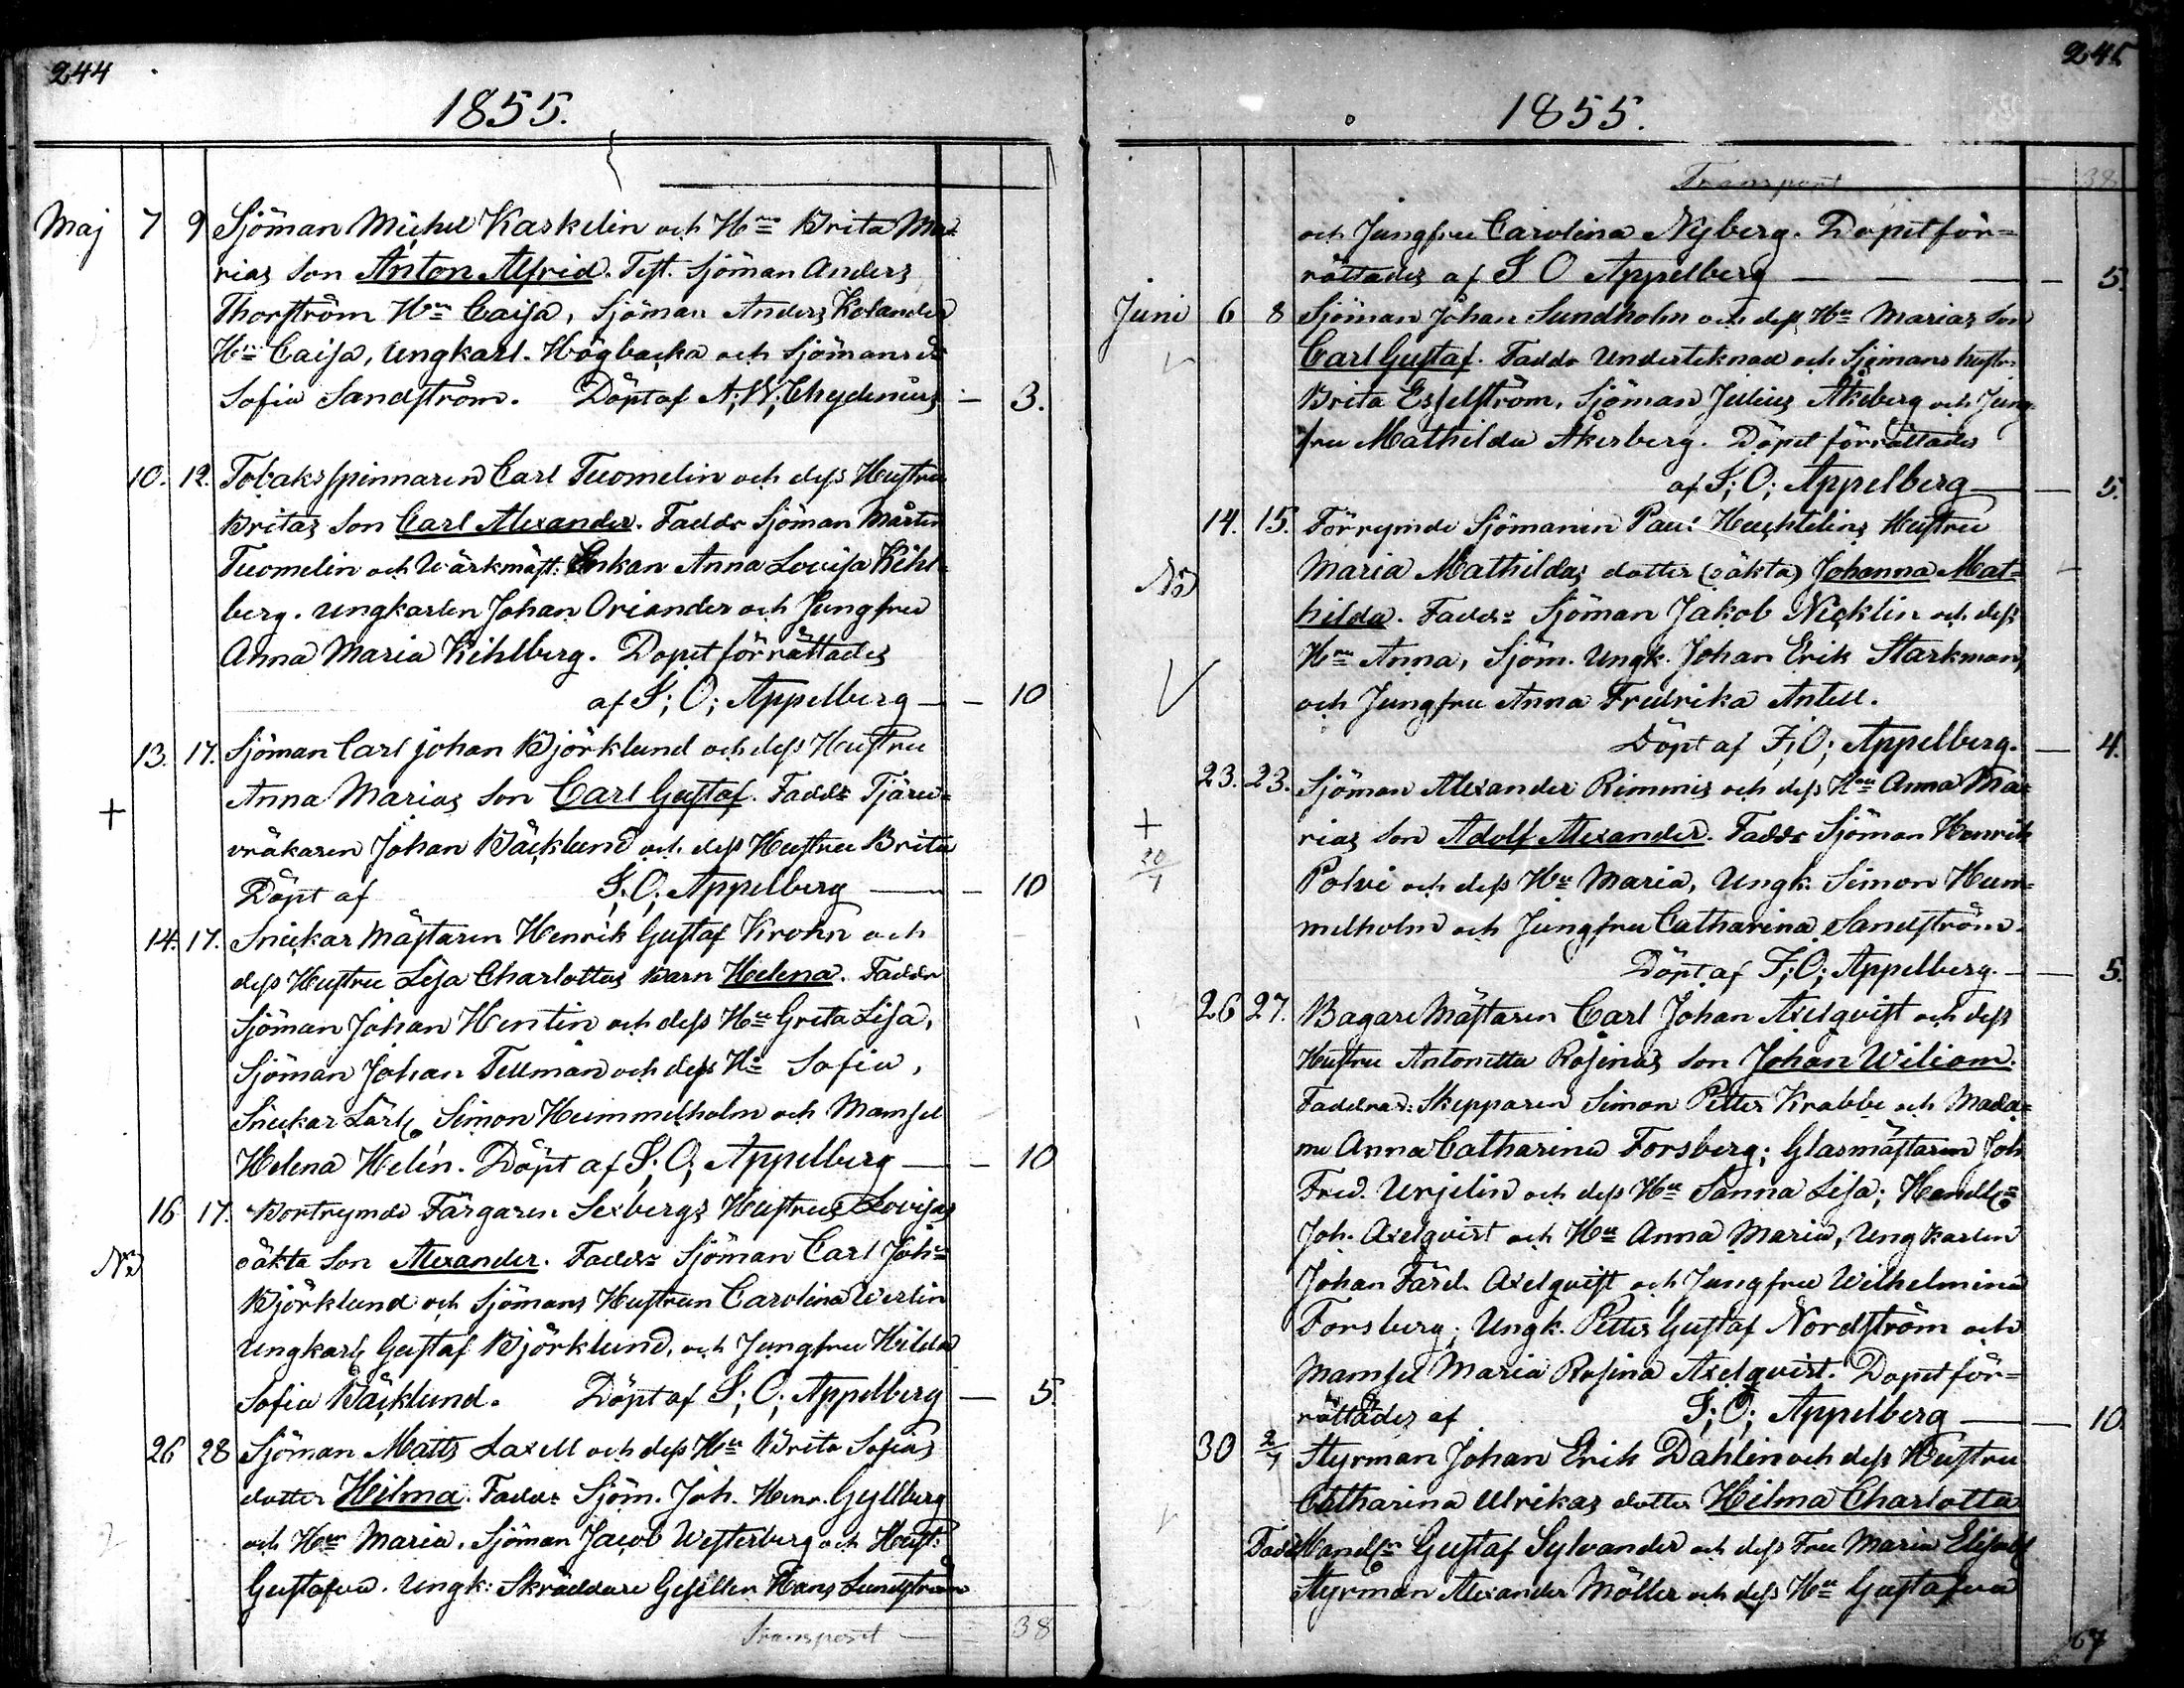 244
1855.
Maj 7 9 Sjöman Michel Kaskelin och Hu Brita Ma-
rias Son Anton Alfrid. Test. Sjöman Anders
Thorström Hu Caisa, Sjöman Anders Kolander
Hu Caisa, Ungkarl. Högbacka och Sjömans dr
Sofia Sandström. Döpt af A; W; Chydenius — 3.
10. 12. Tobaksspinnaren Carl Tuomelin och dess Hustru
Britas Son Carl Alexander. Faddr Sjöman Mårten
Tuomelin och Wärkmäst: Enkan Anna Lovisa Kihl-
berg. Ungkarlen Johan Oriander och Jungfru
Anna Maria Kihlberg. Dopet förrättades
af F; O; Appelberg — — 10
13. 17. Sjöman Carl Johan Björklund och dess Hustru
Anna Marias Son Carl Gustaf. Faddr Tjäru-
+
vräkaren Johan Bäcklund och dess Hustru Brita
Döpt af F; O; Appelberg — — 10
14. 17. Snickar Mästaren Henrik Gustaf Krohn och
dess Hustru Lisa Charlottas Barn Helena. Faddr
Sjöman Johan Hentin och dess Hu Greta Lisa,
Sjöman Johan Tellman och dess Hu Sofia,
Snickar Lärl. Simon Hummelholm och Mamsel
Helena Helén. Döpt af F; O; Appelberg — — 10
16 17. Bortrymde Färgaren Sexbergs Hustrus Lovisas
oäkta Son Alexander. Faddr Sjöman Carl John
Björklund och Sjömans Hustrun Carolina Werlin
Ungkarl Gustaf Björklund, och Jungfru Hilda
Sofia Bäcklund. Döpt af F; O; Appelberg — 5.
26 28 Sjöman Matts Laxell och dess Hu Brita Sofias
dotter Hilma. Faddr Sjöm. Joh. Henr. Gyllberg
och Hu Maria, Sjöman Jacob Westerberg och Hust:
Gustafva. Ungk: Skräddare Gesellen Hans Lundström
Transport — 38
245
1855.
Transport 38
och Jungfru Carolina Nyberg. Dopet för-
rättades af F O Appelberg — — — 5.
Juni 6 8 Sjöman Johan Sundholm och dess Hu Marias Son
Carl Gustaf. Faddr Undertecknad och Sjömans hustr.
Brita Esselström, Sjöman Julius Åkeberg och Jung-
fru Mathilda Åkerberg. Döpet förrättades
af F; O; Appelberg — — 5.
14. 15. Förrymde Sjömannen Paul Huchtelins Hustru
Maria Mathildas dotter (oäkta) Johanna Mat-
hilda. Faddr Sjöman Jakob Nicklin och dess
Hu Anna, Sjöm. Ungk. Johan Erik Starkman,
och Jungfru Anna Fredrika Antell.
Döpt af F; O; Appelberg. — 4.
23. 23. Sjöman Alexander Rimmis och dess Hu Anna Ma-
+
rias Son Adolf Alexander. Faddr Sjöman Henrik
20/7
Polvi och dess Hu Maria, Ungk. Simon Hum-
melholm och Jungfru Catharina Sandström.
Döpt af F; O; Appelberg. — — 5.
26 27. Bagare Mästaren Carl Johan Axelqvist och dess
Hustru Antonetta Rosinas Son Johan Wiliam.
Faddrar: Skepparen Simon Petter Krabbe och Mada-
me Anna Catharina Forsberg; Glasmästaren Joh
Fred. Urjelin och dess Hu Sanna Lisa; Handl.
Joh. Axelqvist och Hu Anna Maria, Ungkarlen
Johan Färd. Axelqvist och Jungfru Wilhelmina
Forsberg; Ungk. Petter Gustaf Nordström och
Mamsel Maria Rosina Axelqvist. Dopet för-
rättades af F; O; Appelberg — — 10.
30 2/7 Styrman Johan Erik Dahlin och dess Hustru
Catharina Ulrikas dotter Hilma Charlotta
Fadd. Handl. Gustaf Sylvander och dess Fru Maria Elisab.
Styrman Alexander Möller och dess Hu Gustafva
67